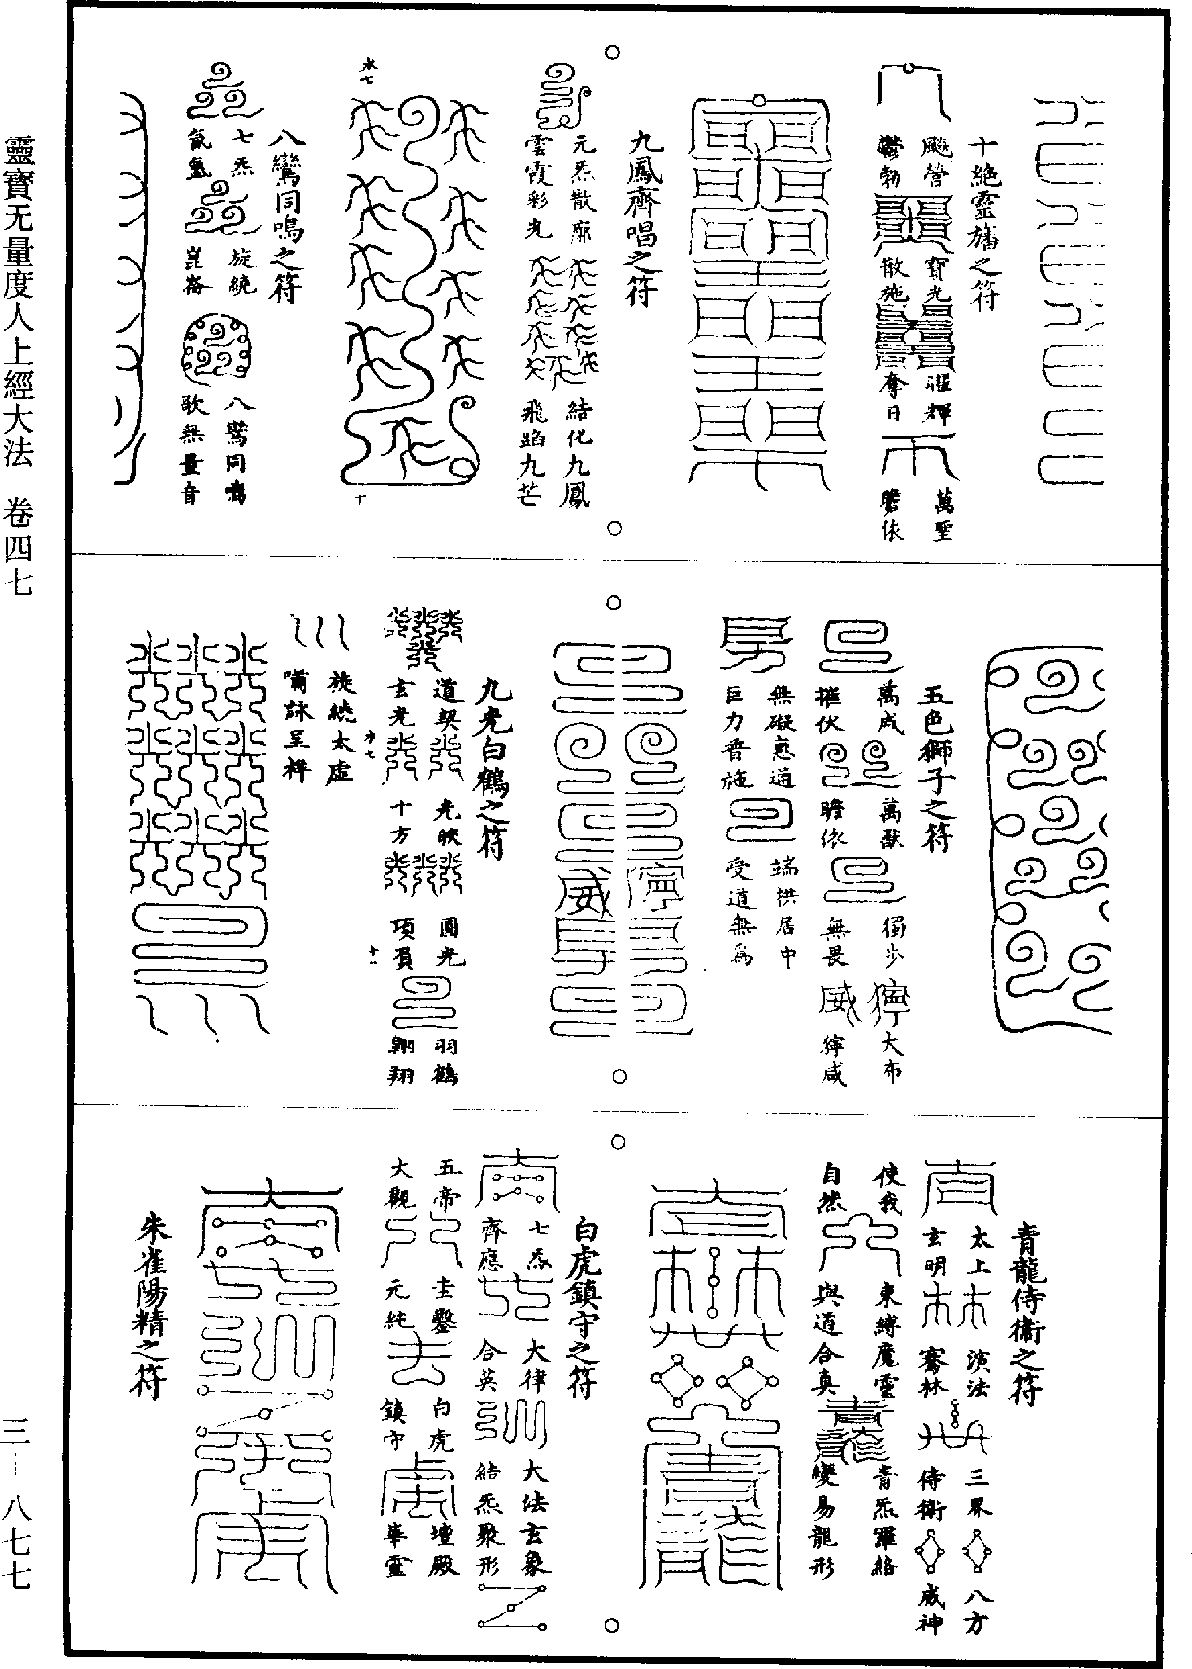 靈寶无量度人上經大法 卷四七
三—八七七
十絕靈旛之符
飈營
鬱勃
寶光
散施
曜輝
奪日
萬聖
瞻依
九鳳齊唱之符
元炁散廓
雲霞彩光
結化九鳳
飛焰九芒
八鸞同鳴之符
七炁
氤氳
旋繞
崑崙
八鸞同鳴
歌無量音
五色獅子之符
萬威
摧伏
萬獸
瞻依
獨步
無畏
大布
無礙慈道
巨力普施
端拱居中
受道無為
九光白鶴之符
道契
玄光
光映
十方
圓光
項負
羽鶴
翱翔
旋繞太虛
嘯詠呈祥
青龍侍衛之符
太上
玄明
演法
騫林
三界
侍衛
八方
威神
使我
自然
東縛魔靈
與道合真
青炁羅絡
變易龍形
白虎鎮守之符
七炁
齊應
大律
合英
大法玄象
結炁聚形
五帝
大觀
玄鑿
元純
白虎
鎮守
壇殿
奉靈
朱雀陽精之符